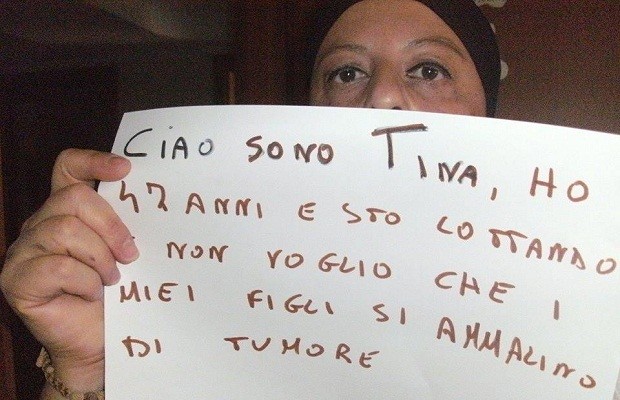 CIAO SONO TINA, HO
47 ANNI E STO LOTTANDO
NON VOGLIO CHE I
MIEI FIGLI SI AMMALINO
DI TUMORE